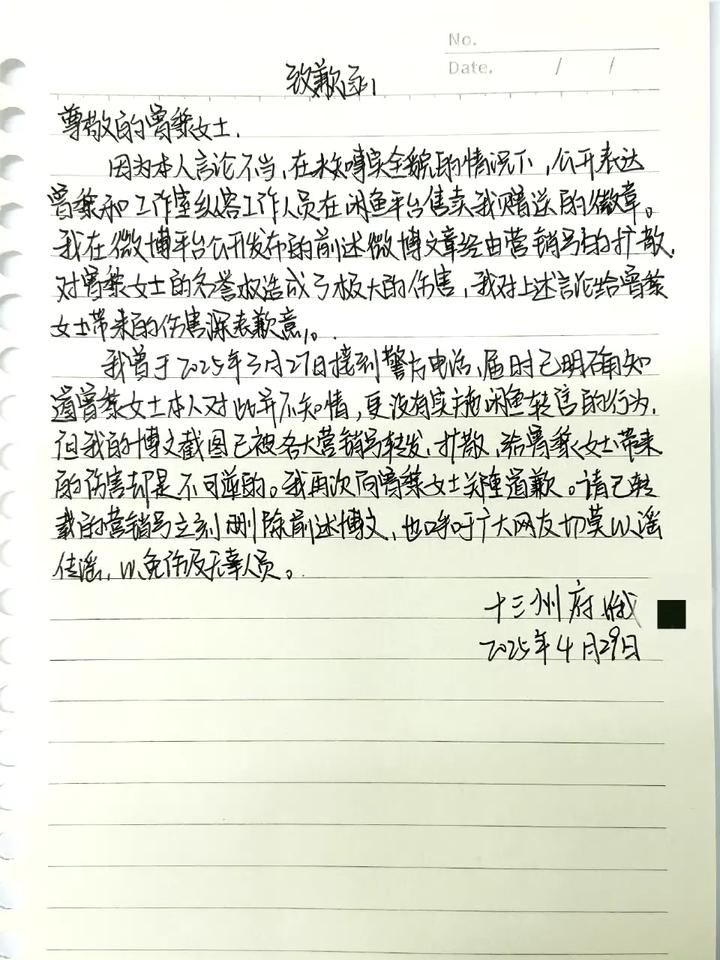 No.
Date. / /
致歉函
尊敬的曾黎女士.
因为本人言论不当,在未获得完全貌的情况下,公开表达
曾黎和工作室纵容工作人员在闲鱼平台售卖我赠送的徽章。
我在微博平台公开发布的前述微博文章经由营销号的扩散,
对曾黎女士的名誉权造成了极大的伤害,我对上述言论给曾黎
女士带来的伤害深表歉意。
我曾于2025年3月27日接到警方电话,届时已明确知
道曾黎女士本人对此并不知情,更没有实施闲鱼转售的行为,
但我的博文截图已被各大营销号转发、扩散,给曾黎女士带来
的伤害却是不可逆的。我再次向曾黎女士道歉。请已转
载的营销号立刻删除前述博文,也呼吁广大网友切莫以谣
传谣,以免伤及无辜人员。
十三州府
2025年4月29日